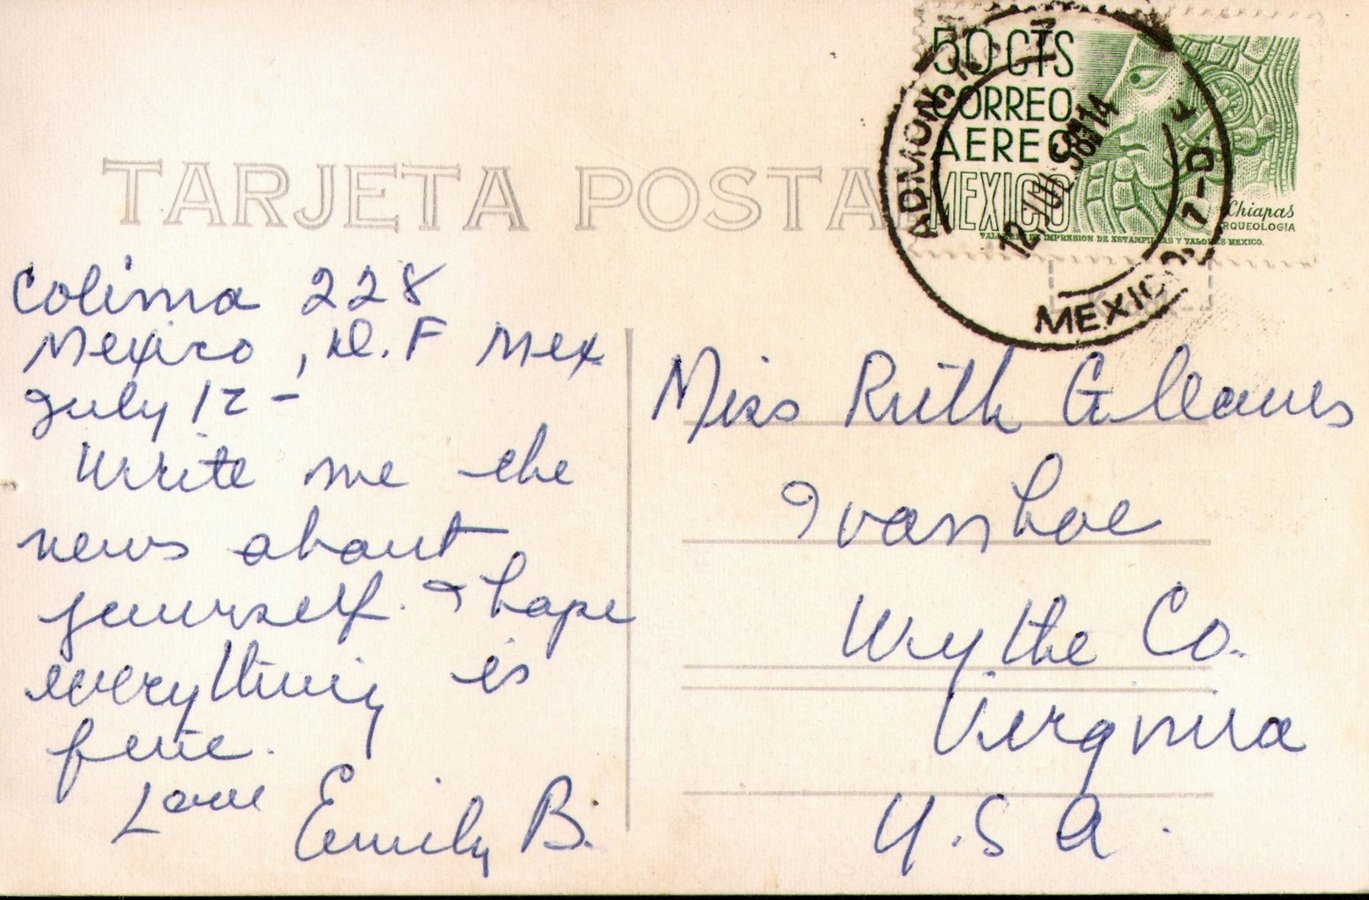 TARJETA POSTAL
50 CTS
CORREO
AEREO
MEXICO
Chiapas
ARQUEOLOGIA
TALLERES DE IMPRESION DE ESTAMPILLAS Y VALORES MEXICO.
ADMON.
MEXICO, D
12 JUL 58 14
Colima 228
Mexico, D.F Mex
July 12 -
Write me the
news about
yourself. I hope
everything is
fine.
Love
Emily B.
Miss Ruth Gleaves
Ivanhoe
Wythe Co.
Virginia
U.S.A.